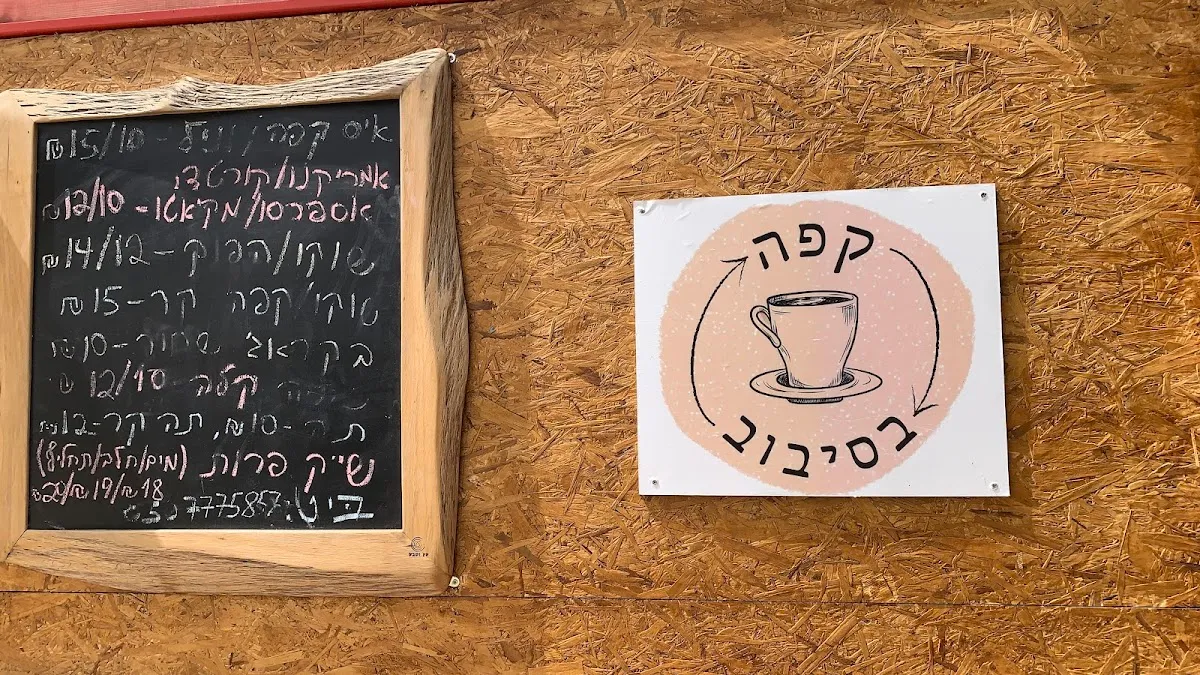 איס קפה/וניל - 15/10 ₪
אמריקנו/קורטדו,
אספרסו/מקאטו - 12/10 ₪
שוקו/הפוך - 14/12 ₪
שוקו/קפה קר - 15 ₪
בקראג' שחור - 10 ₪
קפה קלה 12/10 ₪
תה - 10 ₪, תה קר - 12 ₪
שייק פרות (מים/חלב/תהליף)
18 ₪/19 ₪/20 ₪
ביט: 7775857
קפה
בסיבוב